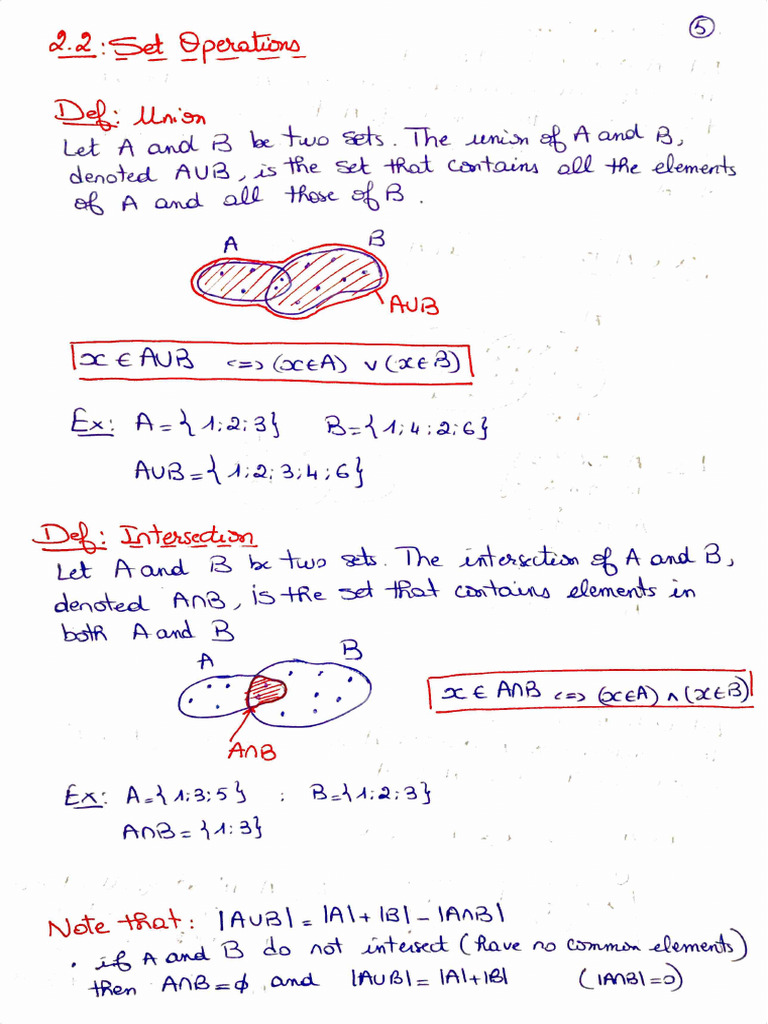 5
2.2: Set Operations
Def: Union
Let A and B be two sets. The union of A and B,
denoted A∪B, is the set that contains all the elements
of A and all those of B.
A B
A∪B
x ∈ A∪B <=> (x∈A) ∨ (x∈B)
Ex: A={1;2;3} B={1;4;2;6}
A∪B={1;2;3;4;6}
Def: Intersection
Let A and B be two sets. The intersection of A and B,
denoted A∩B, is the set that contains elements in
both A and B
A B
x ∈ A∩B <=> (x∈A) ∧ (x∈B)
A∩B
Ex: A={1;3;5} ; B={1;2;3}
A∩B={1;3}
Note that: |A∪B|=|A|+|B|-|A∩B|
• if A and B do not intersect (have no common elements)
then A∩B=ϕ and |A∪B|=|A|+|B| (|A∩B|=0)